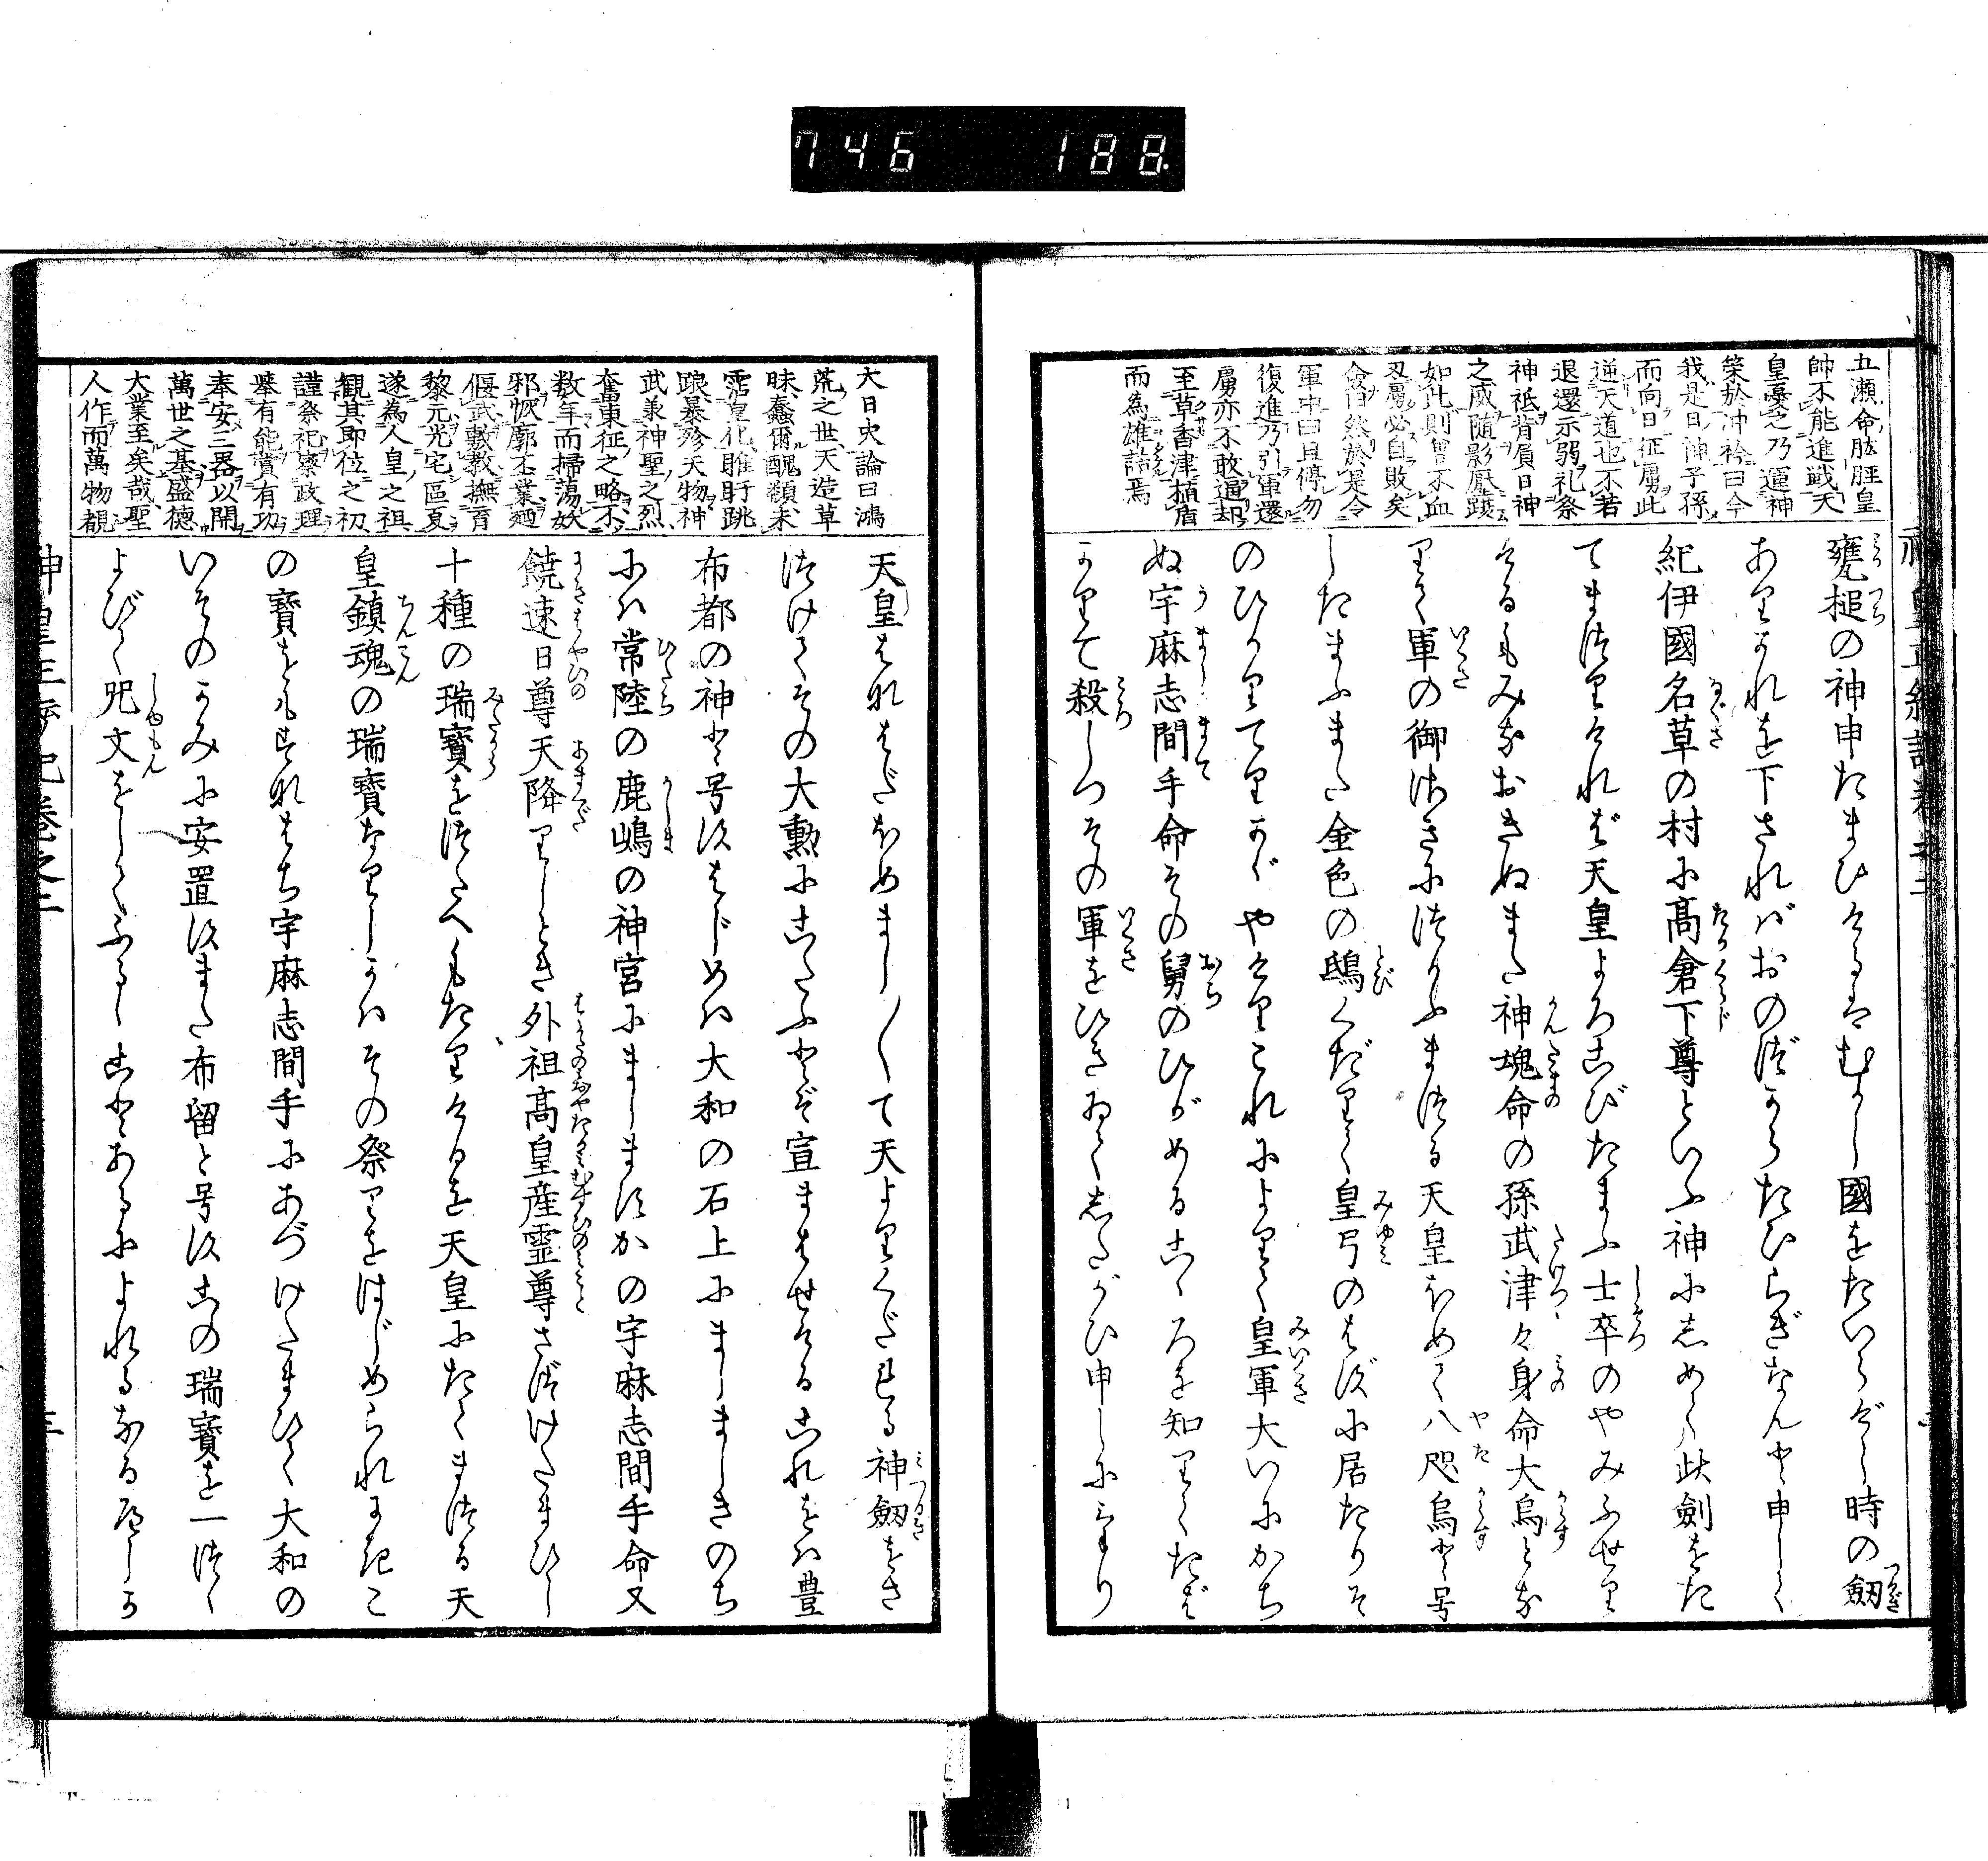 746 188
五瀬命肱脛皇
師不能進戦天
皇憂之乃運神
策於冲衿曰今
我是日神子孫
而向日征虜此
逆天道也不若
退還示弱祀祭
神祇背負日神
之威随影壓躡
如此則曽不血
刃虜必自敗矣
僉曰然於是令
軍中曰且停勿
復進乃引軍還
虜亦不敢逼却
至草香津植盾
而為雄誥焉
甕槌の神申たまひけるはむかし國をたいらげし時の劔
あり これを下さればおのづからたひらぎなんと申して
紀伊國名草の村に髙倉下尊といふ神にしめして此劍をた
てまつりければ天皇よろこびたまふ士卒のやみふせり
けるもみなおきぬまた神魂命の孫武津々身命大烏とな
りて軍の御さきにつかふまつる天皇ほめて八咫烏と号
したまふまた金色の鵄くだりて皇弓のはずに居たりそ
のひかりてりかゞやけりこれによりて皇軍大いにかち
ぬ宇麻志間手命その舅のひがめるこゝろを知りてたば
かりて殺しつその軍をひきゐてしたがひ申しにけり
大日史論曰鴻
荒之世天造草
昧蠢爾醜類未
霑皇化睢盱跳
踉暴殄天物神
武兼神聖之烈
奮東征之略不
数年而掃蕩妖
邪恢廓丕業廼
偃武敷教撫育
黎元光宅區夏
遂為人皇之祖
観其即位之初
謹祭祀察政理
挙有能賞有功
奉安三器以開
萬世之基盛徳
大業至矣哉聖
人作而萬物覩
天皇はなはだほめまし〱て天よりくだれる神劔をさ
づけてその大勲にこたふとぞ宣まはせけるこれをハ豊
布都の神と号すはじめハ大和の石上にましましきのち
にハ常陸の鹿嶋の神宮にましますかの宇麻志間手命又
饒速日尊天降りしとき外祖髙皇産霊尊さづけたまひし
十種の瑞寶をつたへもたりけるを天皇にたてまつる天
皇鎮魂の瑞寶なりしかハその祭りをはじめられにきこ
の寶をもすなはち宇麻志間手にあづけたまひて大和の
いそのかみに安置すまた布留と号すこの瑞寶を一づゝ
よびて咒文をしてふるしことあるによれるなるべしか
神皇正統記巻之二